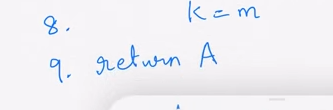 8. K = m
9. return A